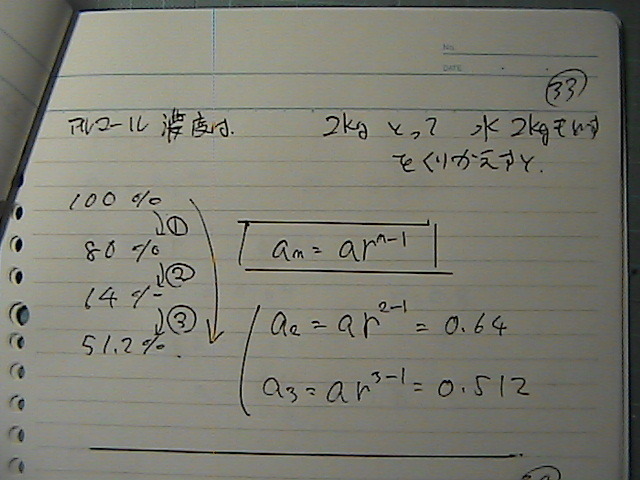 NO.
DATE
33
アルコール 濃度は、 2kg とって 水 2kgをいれ
をくりかえすと、
100 %
①
80 %
②
64 %
③
51.2 %.
an = ar^n-1
a2 = ar^2-1 = 0.64
a3 = ar^3-1 = 0.512